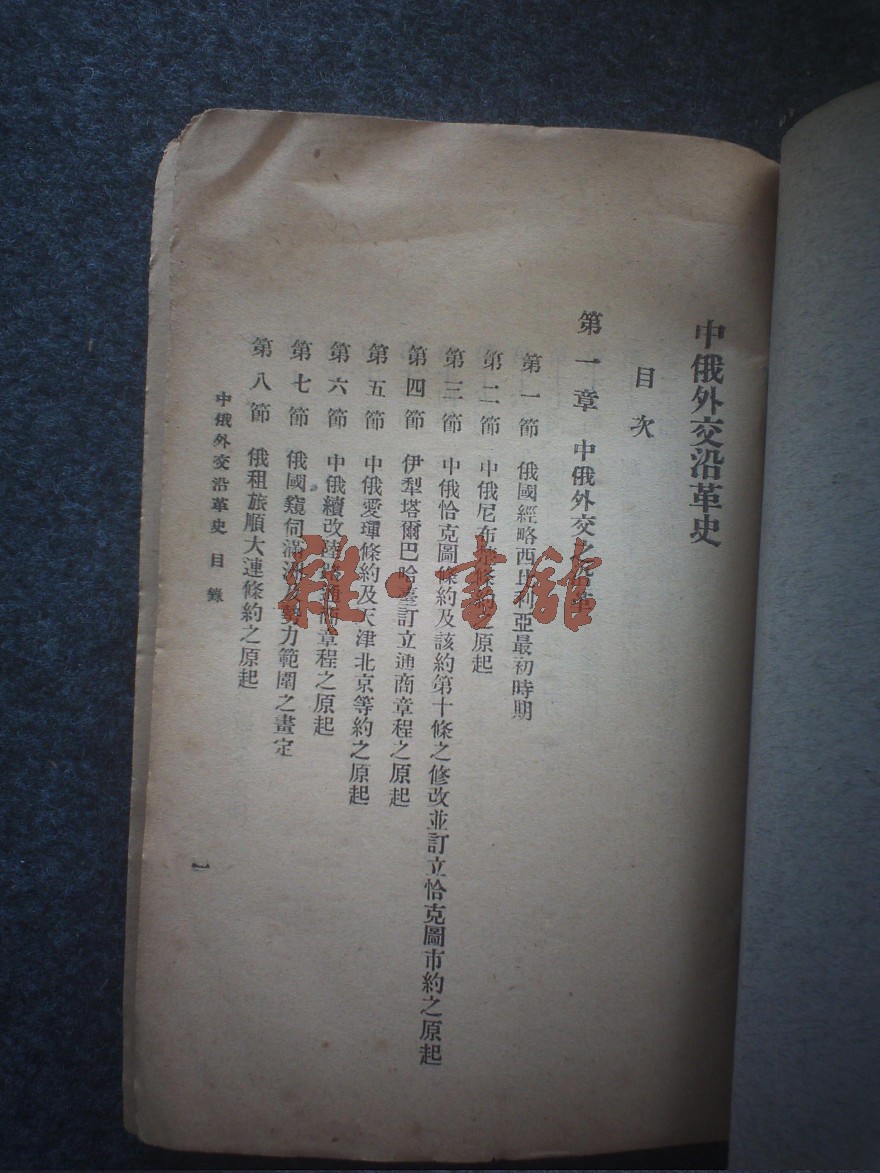 中俄外交沿革史
目次
第一章 中俄外交之沿革
第一節 俄國經略西比利亞最初時期
第二節 中俄尼布條約之原起
第三節 中俄恰克圖條約及該約第十條之修改並訂立恰克圖市約之原起
第四節 伊犁塔爾巴哈臺訂立通商章程之原起
第五節 中俄愛琿條約及天津北京等約之原起
第六節 中俄續改陸路通商章程之原起
第七節 俄國窺伺滿洲及勢力範圍之畫定
第八節 俄租旅順大連條約之原起
中俄外交沿革史 目錄
一
雜·書館